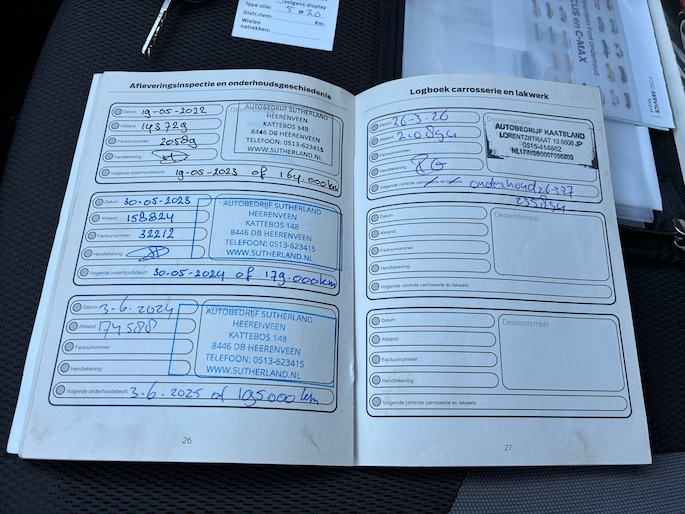 volgens display
Type olie: 5 W 20
Distr.riem: Km.
Wielen
natrekken:
Ford Onderhoud
CUS en C-MAX
FORD SERVICE
Afleveringsinspectie en onderhoudsgeschiedenis
Datum: 19-05-2022
Afstand: 143729
Factuurnummer: 20589
Handtekening:
Volgende onderhoudsbeurt: 19-05-2023 of 164.000km
AUTOBEDRIJF SUTHERLAND
HEERENVEEN
KATTEBOS 148
8446 DB HEERENVEEN
TELEFOON: 0513-623415
WWW.SUTHERLAND.NL
Datum: 30-05-2023
Afstand: 158824
Factuurnummer: 32212
Handtekening:
Volgende onderhoudsbeurt: 30-05-2024 of 179.000km
AUTOBEDRIJF SUTHERLAND
HEERENVEEN
KATTEBOS 148
8446 DB HEERENVEEN
TELEFOON: 0513-623415
WWW.SUTHERLAND.NL
Datum: 3-6-2024
Afstand: 174588
Factuurnummer:
Handtekening:
Volgende onderhoudsbeurt: 3-6-2025 of 195000 km
AUTOBEDRIJF SUTHERLAND
HEERENVEEN
KATTEBOS 148
8446 DB HEERENVEEN
TELEFOON: 0513-623415
WWW.SUTHERLAND.NL
26
Logboek carrosserie en lakwerk
Datum: 26-3-26
Afstand: 210894
Factuurnummer:
Handtekening:
Volgende controle carrosserie en lakwerk: onderhoud 26-3-27
235894
Dealerstempel
AUTOBEDRIJF KAATSLAND
LORENTZSTRAAT 13 8606 JP
0515-414602
Datum:
Afstand:
Factuurnummer:
Handtekening:
Volgende controle carrosserie en lakwerk:
Dealerstempel
Datum:
Afstand:
Factuurnummer:
Handtekening:
Volgende controle carrosserie en lakwerk:
Dealerstempel
27